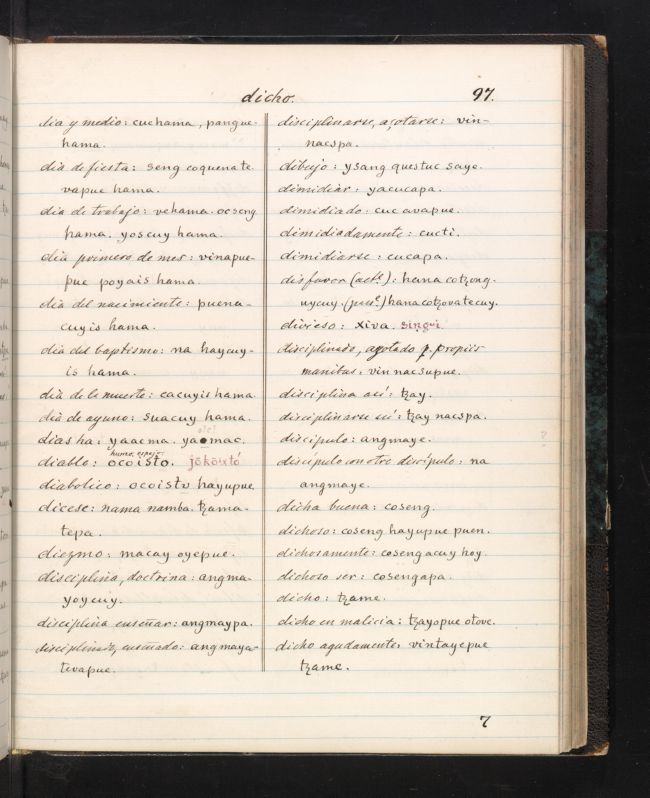 dicho.
97.
dia y medio: cuchama, pangue-
hama.
dia de fiesta: seng coquenate
vapue hama.
dia de trabajo: vehama. ocseng
hama. yoscuy hama.
dia primero de mes: vinapue-
pue poyais hama.
dia del nacimiento: puena-
cuyis hama.
dia del baptismo: na haycuy-
is hama.
dia de la muerte: cacuyis hama
dia de ayuno: suacuy hama.
dias ha: yaacma. yaomac.
humo, espejo.
diablo: ocoisto. jōkōistó
diabolico: ocoisto hayupue.
dicese: nama namba. tzama-
tepa.
diezmo: macay oyepue.
disciplina, doctrina: angma-
yoycuy.
disciplina enseñar: angmaypa.
disciplinado, enseñado: angmaya-
tevapue.
disciplinarse, açotarse: vin-
nacspa.
dibujo: ysang questuc saye.
dimidiar: yacucapa.
dimidiado: cuc avapue.
dimidiadamente: cucti.
dimidiarse: cucapa.
disfavor (act.e): hana cotzong-
uycuy. (pas.e) hana cotzovatecuy.
divieso: xiva. singui
disciplinado, açotado p. propiis
manibus: vin nacsupue.
disciplina asi: tzay.
disciplinarse asi: tzay nacspa.
discipulo: angmaye.
?
discipulo con otro discipulo: na
angmaye.
dicha buena: coseng.
dichoso: coseng hayupue puen.
dichosamente: cosengacuy hoy.
dichoso ser: cosengapa.
dicho: tzame.
dicho en malicia: tzayopue otove.
dicho agudamente: vintayepue
tzame.
7